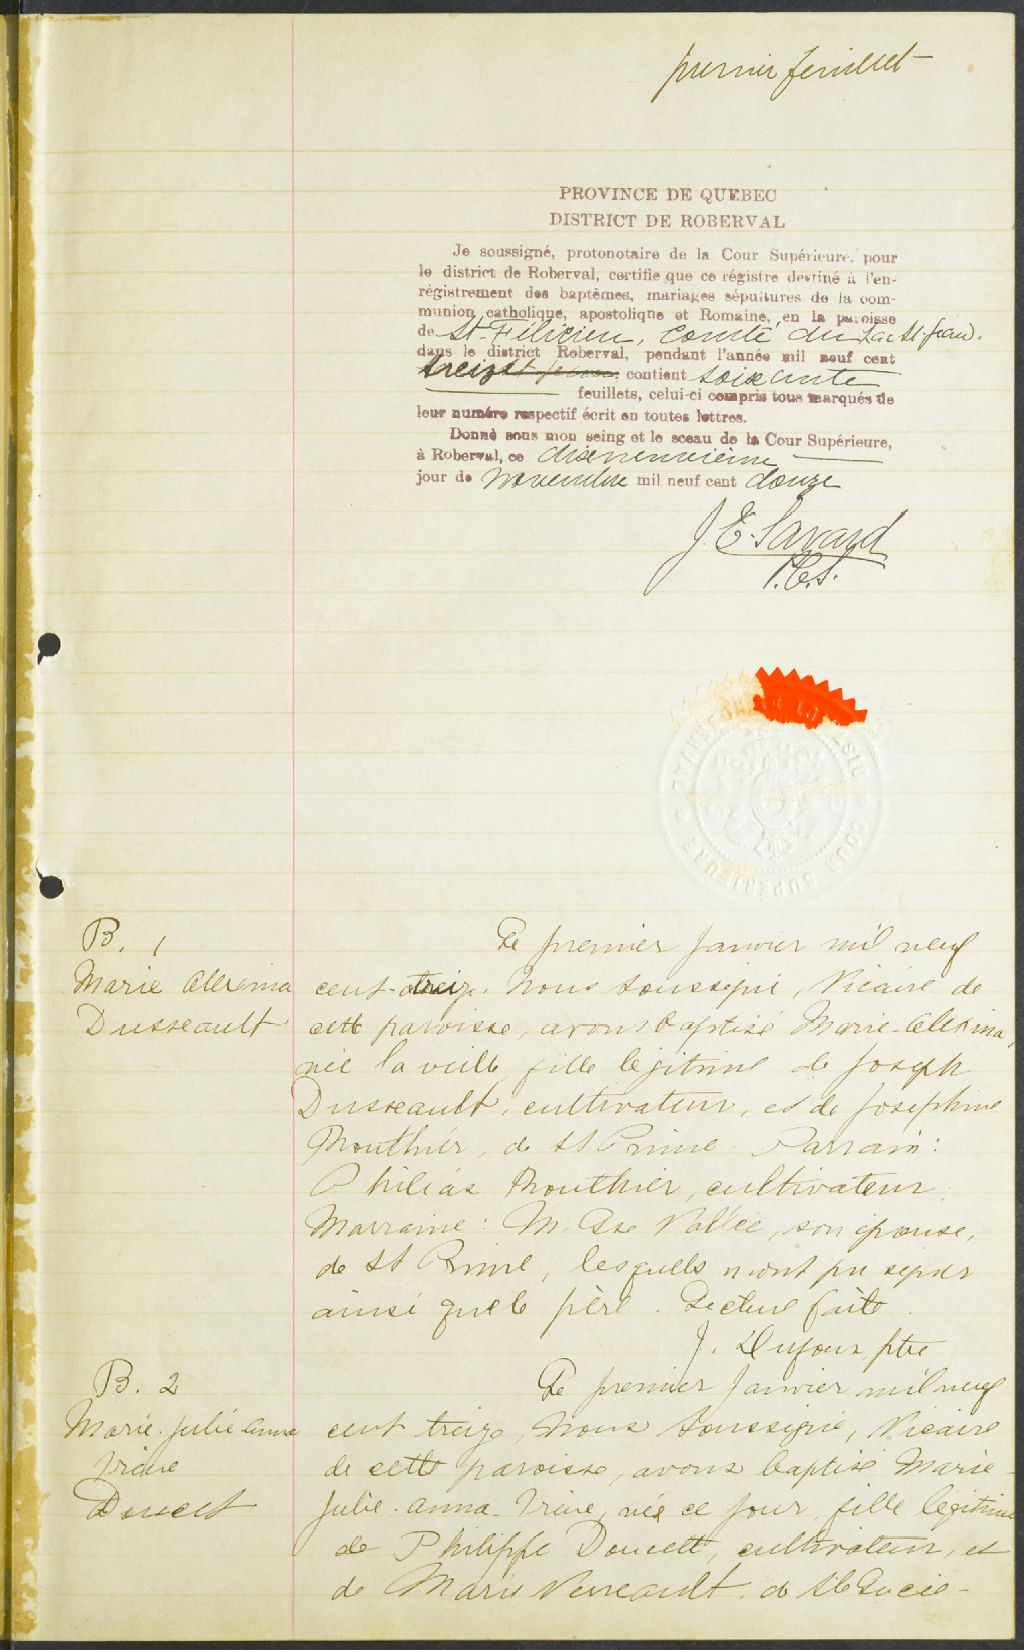 premier feuillet
PROVINCE DE QUEBEC
DISTRICT DE ROBERVAL
Je soussigné, protonotaire de la Cour Supérieure, pour
le district de Roberval, certifie que ce régistre destiné à l'en-
régistrement des baptêmes, mariages sépultures de la com-
munion catholique, apostolique et Romaine, en la paroisse
de St-Félicien, comté du Lac St-Jean.
dans le district Roberval, pendant l'année mil neuf cent
treize contient soixante
feuillets, celui-ci compris tous marqués de
leur numéro respectif écrit en toutes lettres.
Donné sous mon seing et le sceau de la Cour Supérieure,
à Roberval, ce dixneuvième
jour de novembre mil neuf cent douze
J. E. Savard
P.C.S.
COUR SUPERIEURE
B. 1
Marie Alexina
Dusseault
Le premier janvier mil neuf
cent-treize, Nous soussigné, Vicaire de
cette paroisse, avons baptisé Marie-Alexina,
née la veille, fille légitime de Joseph
Dusseault, cultivateur, et de Joséphine
Mouthier, de St Prime. Parrain:
Philéas Mouthier, cultivateur.
Marraine: M. Vallée, son épouse,
de St Prime, lesquels n'ont pu signer
ainsi que le père. Lecture faite.
J. Dufour, ptre
B. 2
Marie-Julie Anna
Irène
Doucet
Le premier Janvier mil neuf
cent treize, Nous soussigné, Vicaire
de cette paroisse, avons baptisé Marie-
Julie-Anna-Irène, née ce jour, fille légitime
de Philippe Doucett, cultivateur, et
de Marie Verreault, de Ste Lucie-